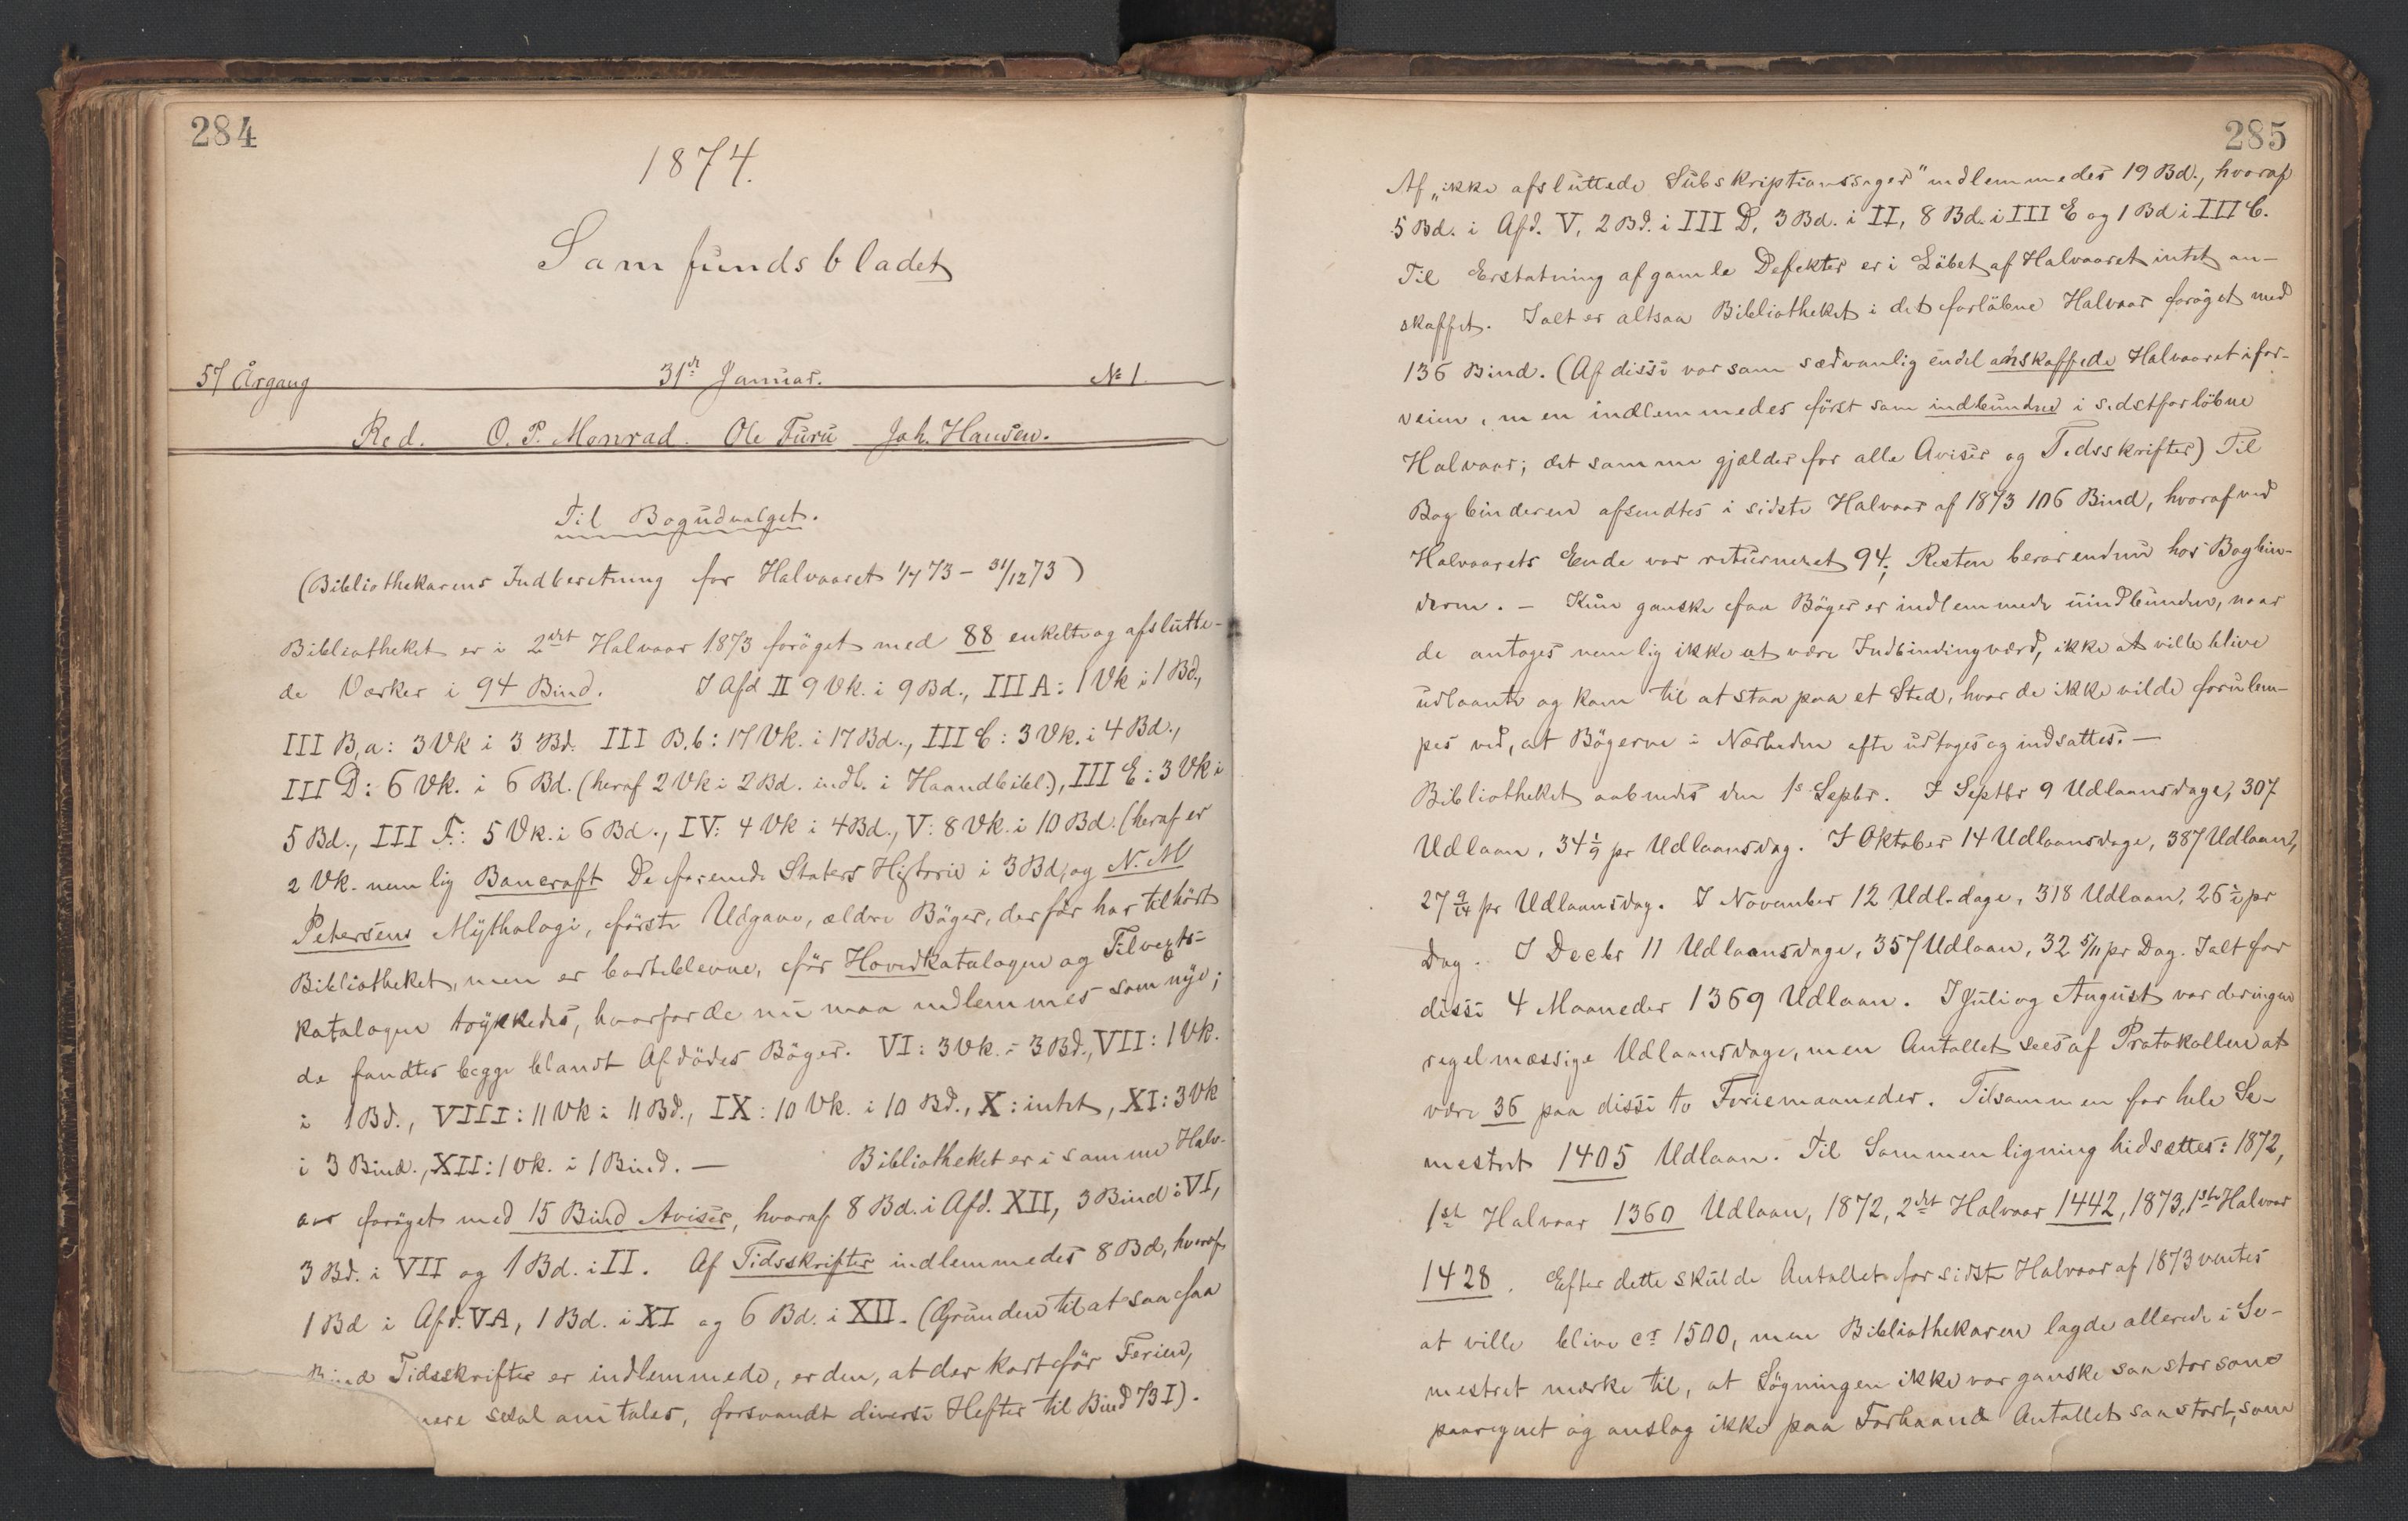 284
1874.
Samfundsbladet
57 Årgang 31te Januar. № 1.
Red. O. P. Monrad. Ole Furu Joh. Hansen.
Til Bogudvalget.
(Bibliothekarens Indberetning for Halvaaret 1/7 73 – 31/12 73)
Bibliotheket er i 2det Halvaar 1873 forøget med 88 enkelte og afslutte-
de Værker i 94 Bind. I Afd II 9 Vk. i 9 Bd., III A: 1 Vk i 1 Bd,
III B,a: 3 Vk i 3 Bd. III B.b: 17 Vk. i 17 Bd., III C: 3 Vk. i 4 Bd.,
III D: 6 Vk. i 6 Bd. (heraf 2 Vk i 2 Bd. indl. i Haandbibl.), III E: 3 Vk i
5 Bd., III F.: 5 Vk. i 6 Bd., IV: 4 Vk i 4 Bd., V: 8 Vk. i 10 Bd. (heraf er
2 Vk. nemlig Bancroft De forenede Staters Historie i 3 Bd, og N. M
Petersens Mythologi, første Udgave, ældre Bøger, der før har tilhørt
Bibliotheket, men er bortblevne, før Hovedkatalogen og Tilvexts-
katalogen trykkedes, hvorfor de nu maa indlemmes som nye;
de fandtes begge blandt Afdødes Bøger. VI: 3 Vk. i 3 Bd., VII: 1 Vk.
i 1 Bd., VIII: 11 Vk i 11 Bd., IX: 10 Vk. i 10 Bd., X: intet, XI: 3 Vk
i 3 Bind., XII: 1 Vk. i 1 Bind. — Bibliotheket er i samme Halv-
aar forøget med 15 Bind Aviser, hvoraf 8 Bd. i Afd. XII, 3 Bind i VI,
3 Bd. i VII og 1 Bd. i II. Af Tidsskrifter indlemmedes 8 Bd, hvoraf
1 Bd i Afd. VA, 1 Bd. i XI og 6 Bd. i XII. (Grunden til at saa faa
Bind Tidsskrifter er indlemmede, er den, at der kort før Ferien,
skal omtales, forsvandt diverse Hefter til Bind 73 I).
285
Af „ikke afsluttede Subskriptionssager" indlemmedes 19 Bd., hvoraf
5 Bd. i Afd. V, 2 Bd. i III D, 3 Bd. i II, 8 Bd. i III E og 1 Bd i III C.
Til Erstatning af gamle Defekter er i Løbet af Halvaaret intet an-
skaffet. Ialt er altsaa Bibliotheket i det forløbne Halvaar forøget med
136 Bind. (Af disse var som sædvanlig endel anskaffede Halvaaret i for-
veien, men indlemmedes først som indbundne i sidstforløbne
Halvaar; det samme gjælder for alle Aviser og Tidsskrifter) Til
Bogbinderen afsendtes i sidste Halvaar af 1873 106 Bind, hvoraf ved
Halvaarets Ende var returneret 94; Resten beror endnu hos Bogbin-
deren. – Kun ganske faa Bøger er indlemmede uindbundne, naar
de antoges nemlig ikke at være Indbinding værd, ikke at ville blive
udlaante og kom til at staa paa et Sted, hvor de ikke vilde forulem-
pes ved, at Bøgerne i Nærheden ofte udtoges og indsattes. —
Bibliotheket aabnedes den 1s Septbr. I Septbr 9 Udlaansdage, 307
Udlaan, 34 1/9 pr Udlaansdag. I Oktober 14 Udlaansdage, 387 Udlaan,
27 9/14 pr Udlaansdag. I November 12 Udl.dage, 318 Udlaan, 26 1/2 pr
Dag. I Decbr 11 Udlaansdage, 357 Udlaan, 32 5/11 pr Dag. Ialt for
disse 4 Maaneder 1369 Udlaan. I Juli og August var der ingen
regelmæssige Udlaansdage, men Antallet sees af Protokollen at
være 36 paa disse to Feriemaaneder. Tilsammen for hele Se-
mestret 1405 Udlaan. Til Sammenligning hidsættes: 1872,
1ste Halvaar 1360 Udlaan, 1872, 2det Halvaar 1442, 1873, 1ste Halvaar
1428. Efter dette skulde Antallet for sidste Halvaar af 1873 ventes
at ville blive cr 1500, men Bibliothekaren lagde allerede i Se-
mestret mærke til, at Søgningen ikke var ganske saa stor som
paaregnet og anslog ikke paa Forhaand Antallet saa stort, som